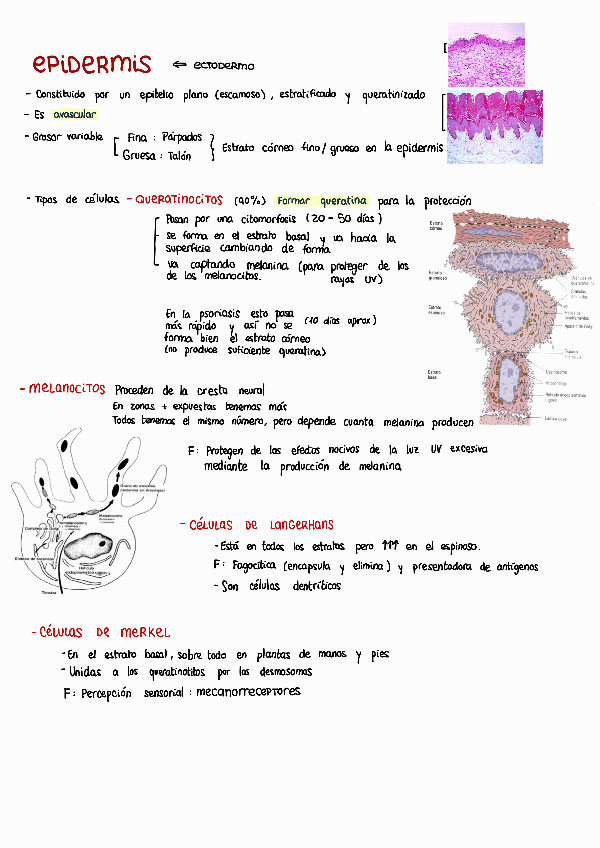 EPIDERMIS ⇐ ECTODERMO
- Constituido por un epitelio plano (escamoso), estratificado y queratinizado
- Es avascular
- Grosor variable
Fina : Párpados
Gruesa : Talón
Estrato córneo fino/grueso en la epidermis
- Tipos de células - QUERATINOCITOS (90%) Formar queratina para la protección
Pasan por una citomorfosis (20 - 50 días)
se forma en el estrato basal y va hacia la
superficie cambiando de forma
va captando melanina (para proteger de los
de los melanocitos. rayos UV)
En la psoriasis esto pasa
más rápido y así no se (10 días aprox)
forma bien el estrato córneo
(no produce suficiente queratina)
Estrato
córneo
Estrato
granuloso
Estrato
espinoso
Estrato
basal
Gránulos de
queratohialina
Gránulos
laminares
Haces de
tonofilamentos
Aparato de Golgi
Espacio
intercelular
Desmosoma
Mitocondrias
Retículo endoplasmático
rugoso
Lámina basal
- MELANOCITOS Proceden de la cresta neural
En zonas + expuestas tenemos más
Todos tenemos el mismo número, pero depende cuanta melanina producen
F: Protegen de los efectos nocivos de la luz UV excesiva
mediante la producción de melanina
Gránulo de melanina
Melanosoma
Premelanosoma
Complejo de Golgi
Retículo
endoplasmático rugoso
Tirosina
- CÉLULAS DE LANGERHANS
- Está en todos los estratos pero ↑↑↑ en el espinoso.
F: Fagocítica (encapsula y elimina) y presentadora de antígenos
- Son células dentríticas
- CÉLULAS DE MERKEL
- En el estrato basal, sobre todo en plantas de manos y pies
- Unidas a los queratinotitos por los desmosomas
F: Percepción sensorial : mecanorreceptores